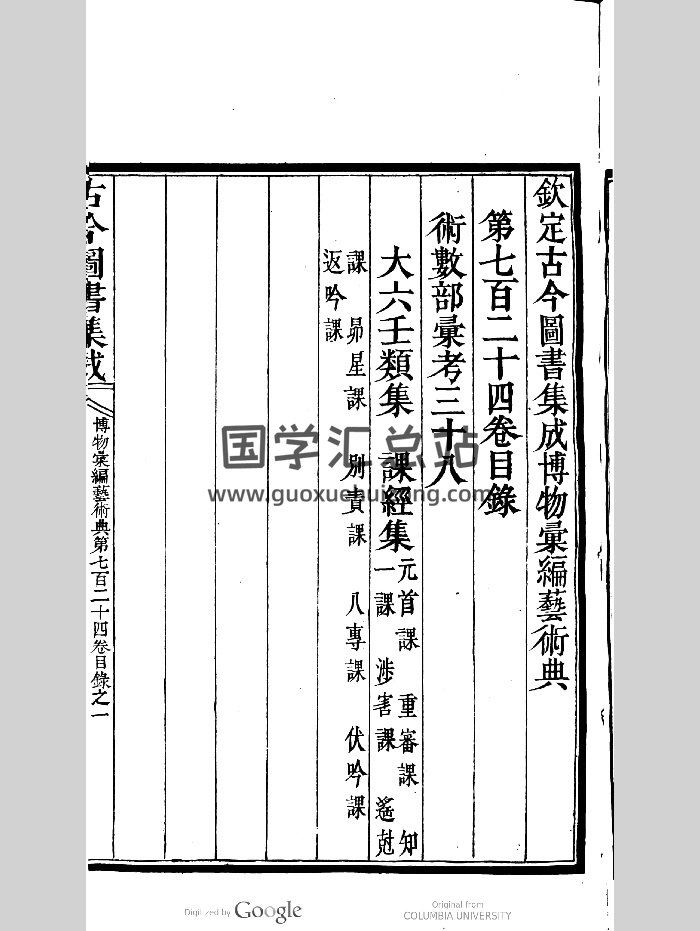 欽定古今圖書集成博物彙編藝術典
第七百二十四卷目錄
術數部彙考三十八
大六壬類集 課經集 元首課 重審課 知
一課 涉害課 遙剋
課 昴星課 別責課 八專課 伏吟課
返吟課
古今圖書集成 博物彙編藝術典第七百二十四卷目錄之一
国学汇总站
www.guoxuehuizong.com
Digitized by Google
Original from
COLUMBIA UNIVERSITY